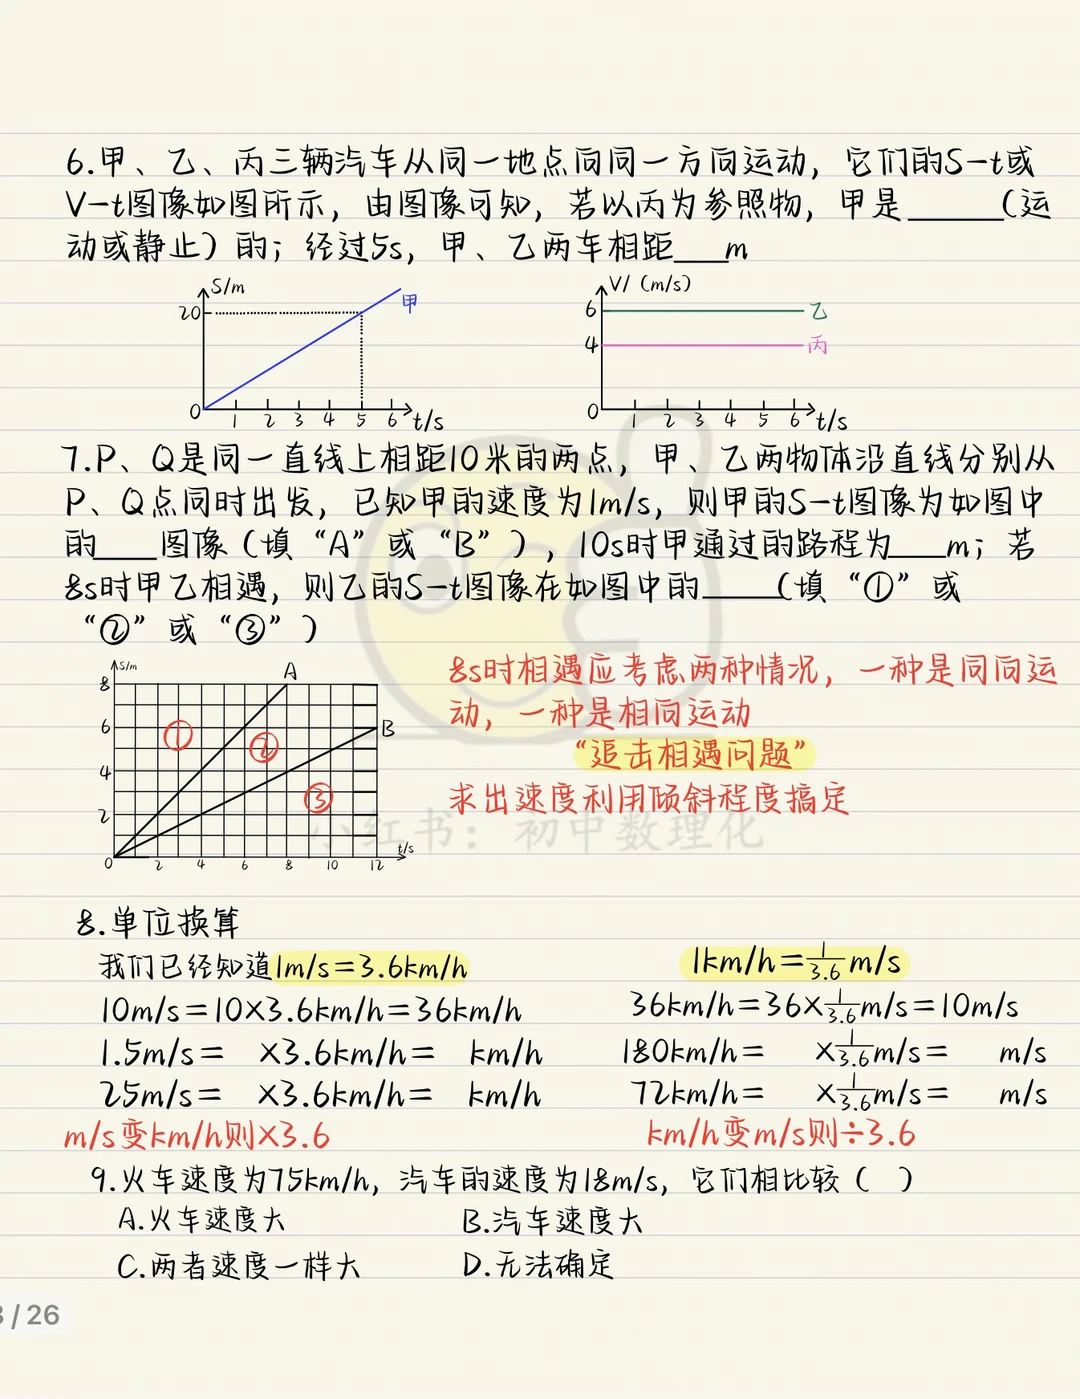 6.甲、乙、丙三辆汽车从同一地点向同一方向运动，它们的S-t或
V-t图像如图所示，由图像可知，若以丙为参照物，甲是______（运
动或静止）的；经过5s，甲、乙两车相距____m
S/m
20
甲
0 1 2 3 4 5 6 t/s
V/（m/s）
6 乙
4 丙
0 1 2 3 4 5 6 t/s
7.P、Q是同一直线上相距10米的两点，甲、乙两物体沿直线分别从
P、Q点同时出发，已知甲的速度为1m/s，则甲的S-t图像为如图中
的____图像（填“A”或“B”），10s时甲通过的路程为____m；若
8s时甲乙相遇，则乙的S-t图像在如图中的_____（填“①”或
“②”或“③”）
S/m
8 A
6 ① ② B
4 ③
2
0 2 4 6 8 10 12 t/s
8s时相遇应考虑两种情况，一种是同向运
动，一种是相向运动
“追击相遇问题”
求出速度利用倾斜程度搞定
小红书：初中数理化
8.单位换算
我们已经知道1m/s=3.6km/h 1km/h=1/3.6m/s
10m/s=10×3.6km/h=36km/h 36km/h=36×1/3.6m/s=10m/s
1.5m/s= ×3.6km/h= km/h 180km/h= ×1/3.6m/s= m/s
25m/s= ×3.6km/h= km/h 72km/h= ×1/3.6m/s= m/s
m/s变km/h则×3.6 km/h变m/s则÷3.6
9.火车速度为75km/h，汽车的速度为18m/s，它们相比较（ ）
A.火车速度大 B.汽车速度大
C.两者速度一样大 D.无法确定
/ 26